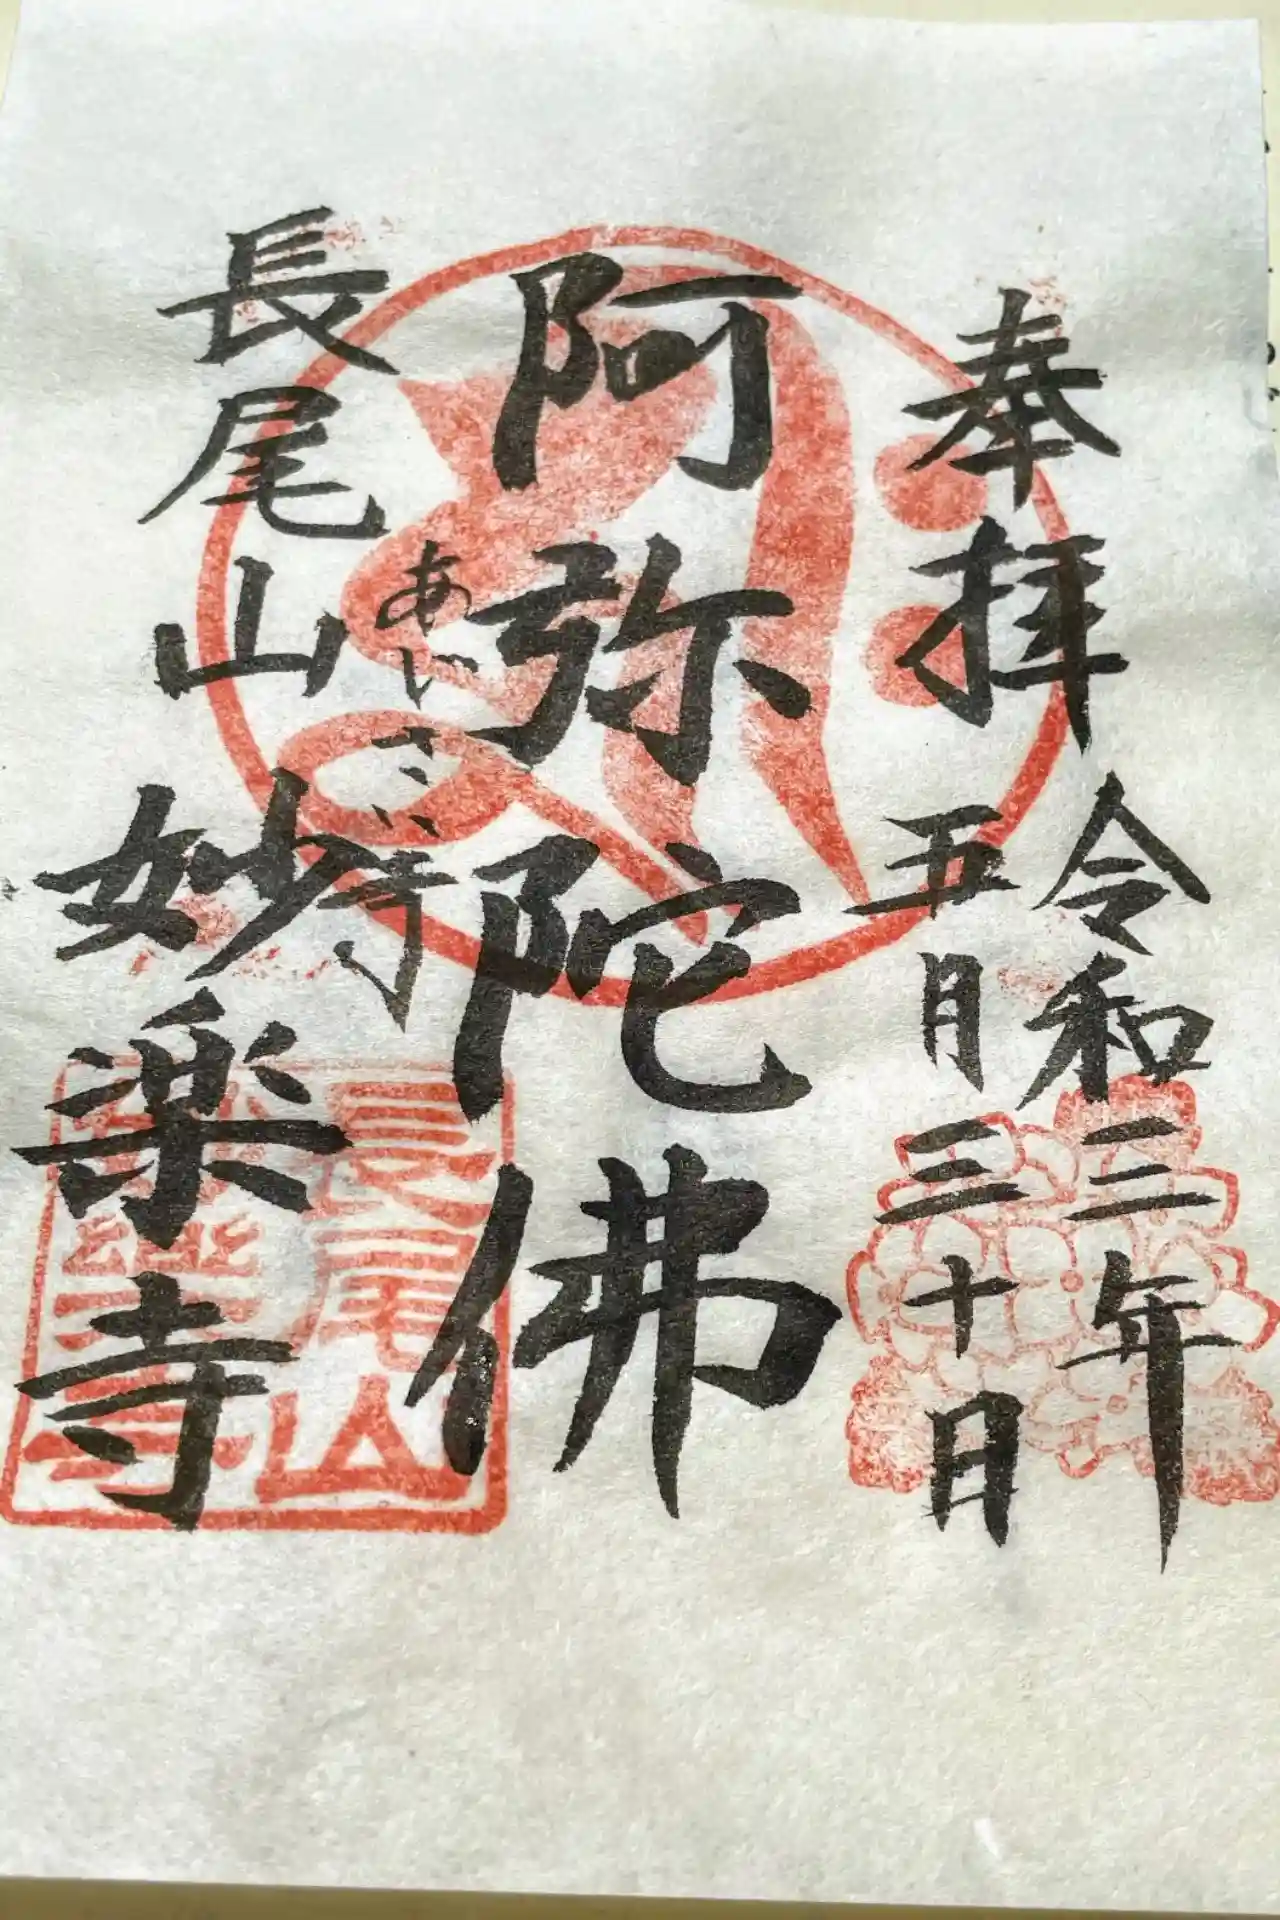 奉拝
令和三年
五月三十日
阿弥陀佛
あじさい寺
長尾山
妙楽寺
長尾山
妙樂寺